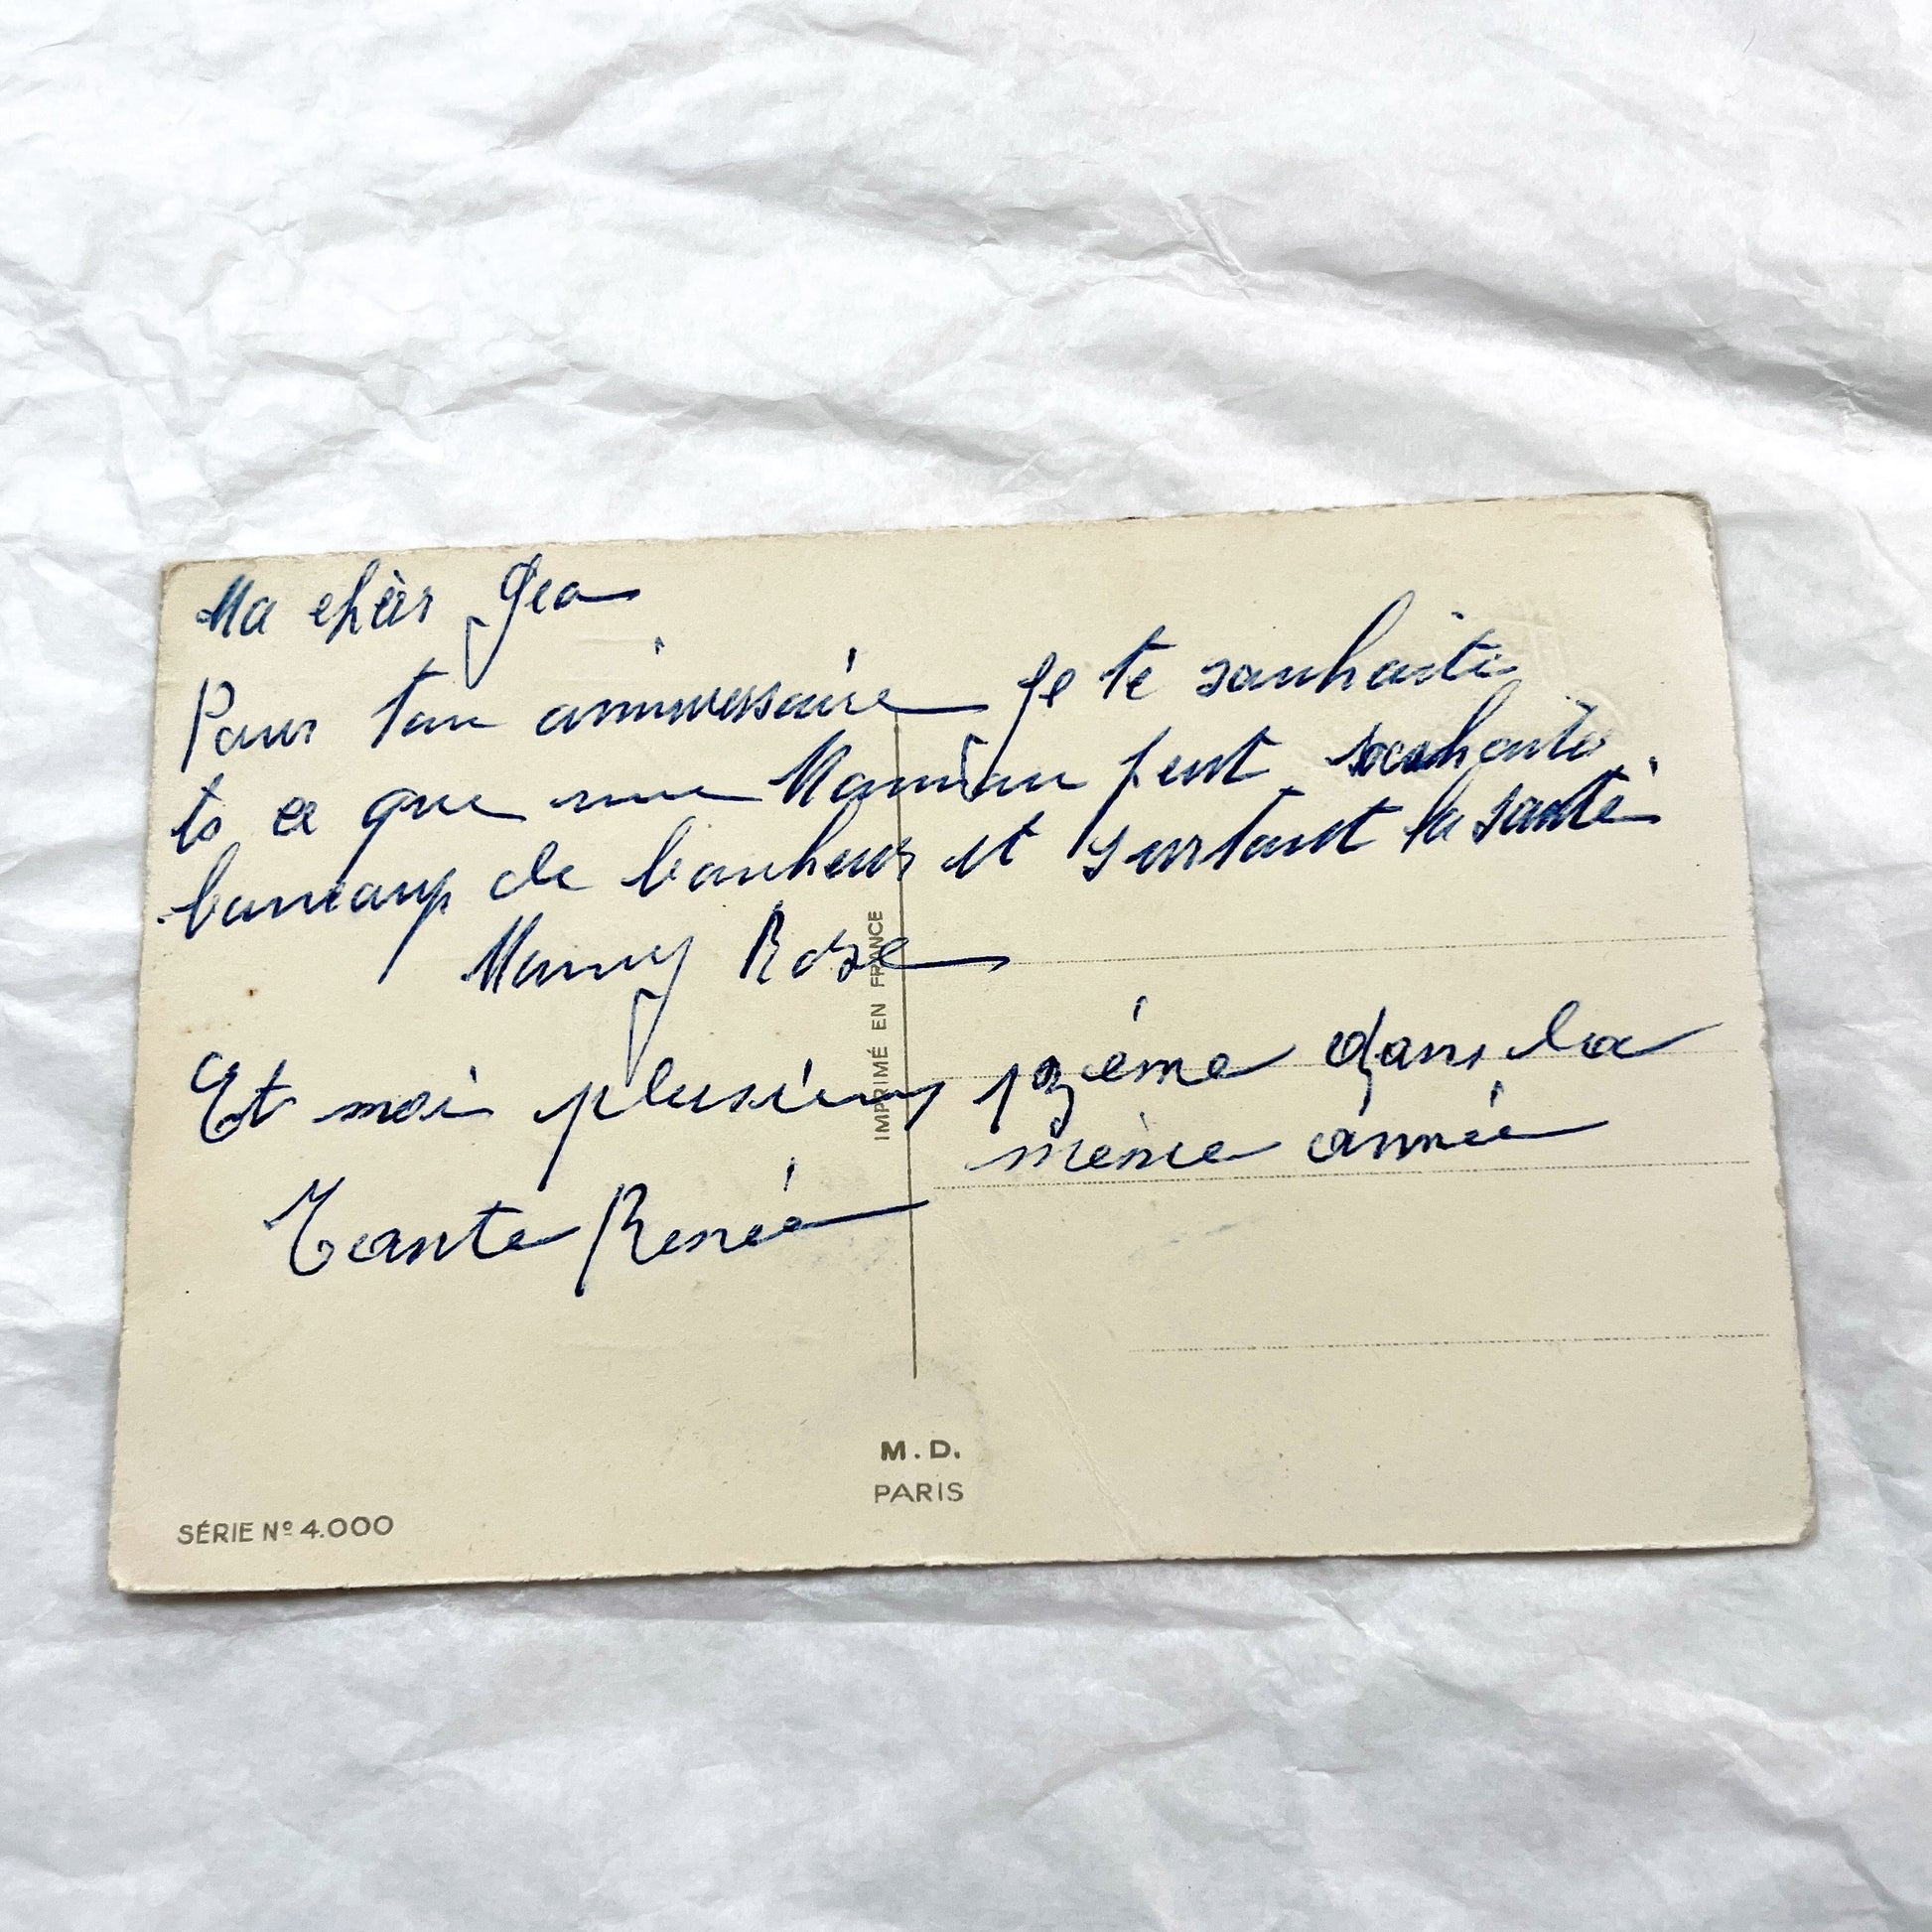 Ma chèr Géo
Pour ton anniversaire je te souhaite
ts ce que une Maman peut souhaiter
baucoup de bonheur et surtout la santé
Mamy Rose
Et moi plusieurs 13ème dans la
même année
Tante Renée
IMPRIMÉ EN FRANCE
M.D.
PARIS
SÉRIE Nº 4.000